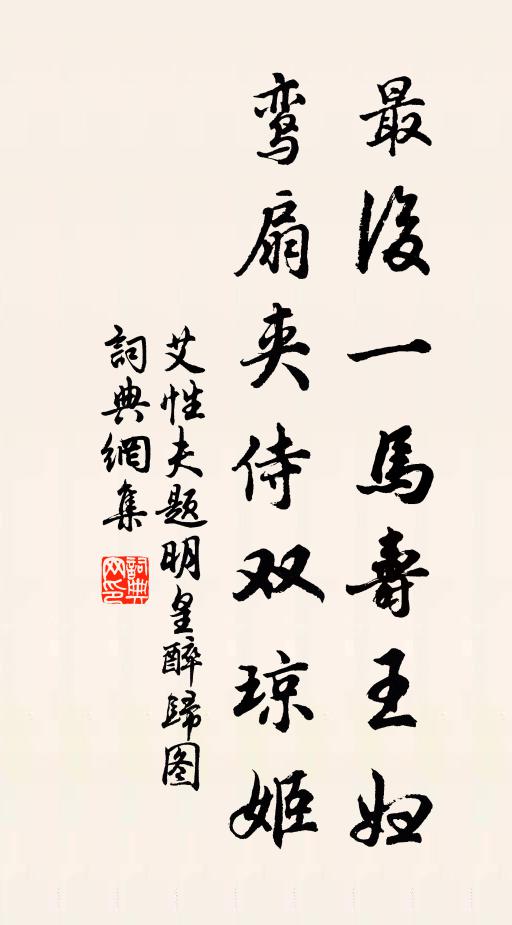 最後一馬壽王妃
鸾扇夹侍双琼姬
艾性夫题明皇醉歸图
詞典網集
詞典网印